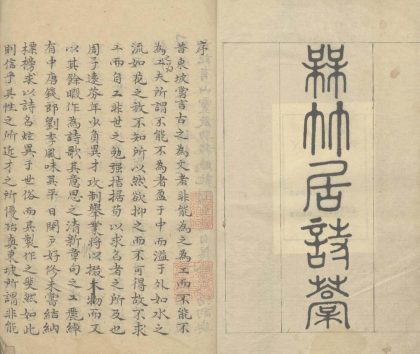 槑竹居詩藁
序
昔東坡嘗言古之為文者非能為之為工而不能不
為之工夫所謂不能不為者盈于中而溢于外如水之
流如夜之欲不知所以然欲抑之而不可得故不求
工而自工非世之勉强掎摭苟以求名者之所及也
周子遠年少負異才攻制舉業將以掇而又
以其餘暇作為詩歌其意思之清新章句之工麗綽
有中唐錢郎劉李風味其平日閉戶好修未嘗結納
標榜求以詩名炫異于世俗而其製作之斐然如此
則信乎其性之所近才之所優殆真東坡所謂非能